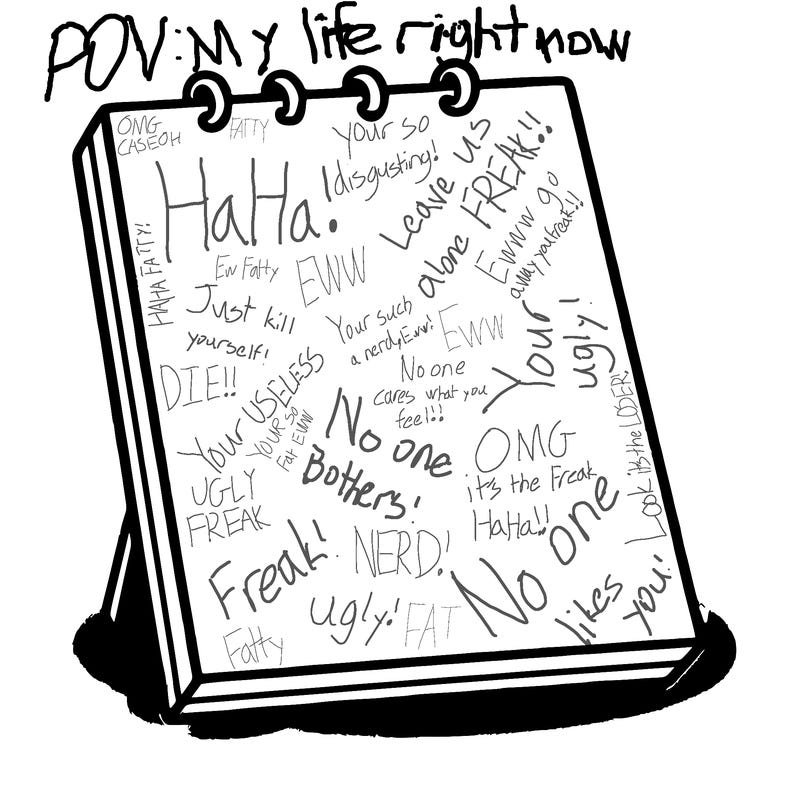 POV: My life right now
OMG
CASEOH
FATTY
Your so
disgusting!
Leave us
alone FREAK!!
HaHa!
HAHA FATTY!
Ew Fatty
EWW
Ewww go
away you freak!!
Just kill
yourself!
Your such
a nerd, Eww!
EWW
Your
ugly!
DIE!!
Your USELESS
YOUR SO
Fat EWW
No one
cares what you
feel!!
No one
Bothers!
OMG
it's the Freak
HaHa!!
Look its the LOSER!
UGLY
FREAK
Freak!
NERD!
No one
likes
you!
Ugly!
FAT
Fatty